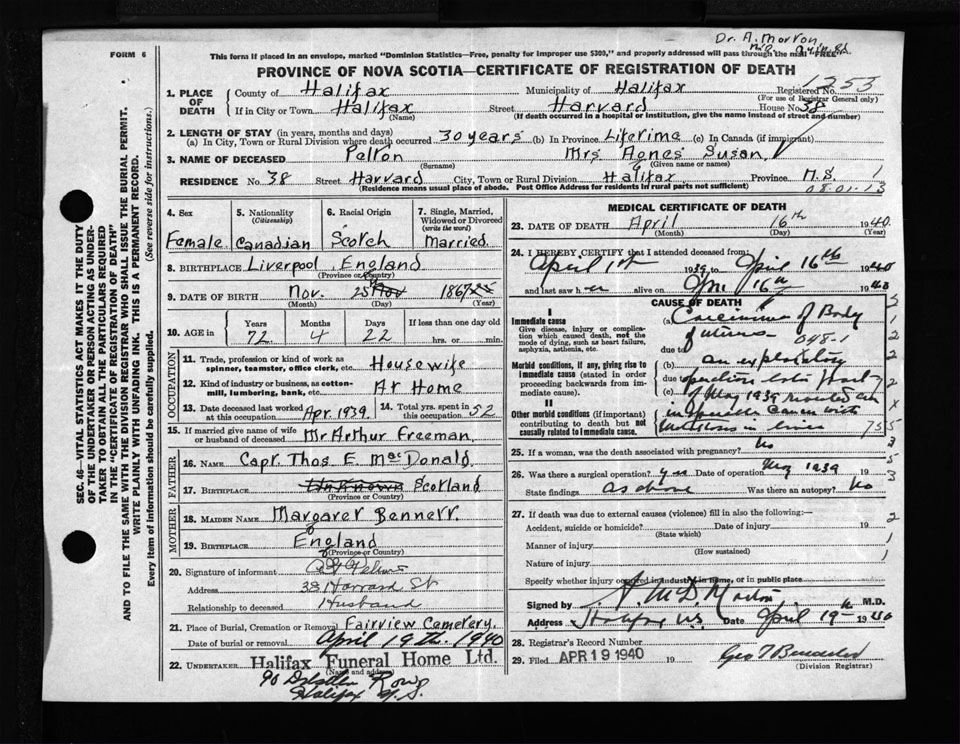 Dr. A. Morton
FORM 6
This form if placed in an envelope, marked "Dominion Statistics—Free, penalty for improper use $300," and properly addressed will pass through the mail FREE.
PROVINCE OF NOVA SCOTIA—CERTIFICATE OF REGISTRATION OF DEATH
1. PLACE OF DEATH County of Halifax Municipality of Halifax Registered No. 1253
(For use of Registrar General only)
If in City or Town Halifax Street Harvard House No. 38
(Name) (If death occurred in a hospital or institution, give the name instead of street and number)
2. LENGTH OF STAY (in years, months and days)
(a) In City, Town or Rural Division where death occurred 30 years (b) In Province Lifetime (c) In Canada (if immigrant)
3. NAME OF DECEASED Pelton Mrs. Agnes Susan
(Surname) (Given name or names)
RESIDENCE No. 38 Street Harvard City, Town or Rural Division Halifax Province N.S. 1
(Residence means usual place of abode. Post Office Address for residents in rural parts not sufficient) 08-01-13
4. Sex 5. Nationality (Citizenship) 6. Racial Origin 7. Single, Married, Widowed or Divorced (write the word)
Female Canadian Scotch Married
8. BIRTHPLACE Liverpool, England
(Province or Country)
9. DATE OF BIRTH Nov. 25 Nov 1867
(Month) (Day) (Year)
10. AGE in Years Months Days If less than one day
72 4 22 hrs. or min.
OCCUPATION
11. Trade, profession or kind of work as spinner, teamster, office clerk, etc. Housewife
12. Kind of industry or business, as cotton-mill, lumbering, bank, etc. At Home
13. Date deceased last worked at this occupation Apr. 1939 14. Total yrs. spent in this occupation 52
15. If married give name of wife or husband of deceased Mr Arthur Freeman
FATHER
16. NAME Capt. Thos E. MacDonald
17. BIRTHPLACE Unknown Scotland
(Province or Country)
MOTHER
18. MAIDEN NAME Margaret Bennett
19. BIRTHPLACE England
(Province or Country)
20. Signature of informant
Address 38 Harvard St
Relationship to deceased Husband
21. Place of Burial, Cremation or Removal Fairview Cemetery.
Date of burial or removal April 19th. 1940
22. UNDERTAKER Halifax Funeral Home Ltd.
(Name and address)
90 Row
Halifax N.S.
MEDICAL CERTIFICATE OF DEATH
23. DATE OF DEATH April 16th 1940
(Month) (Day) (Year)
24. I HEREBY CERTIFY that I attended deceased from:
April 1st 1939 to April 16th 1940
and last saw her alive on Apr 16th 1940
CAUSE OF DEATH
I
Immediate cause
Give disease, injury or complication which caused death, not the mode of dying, such as heart failure, asphyxia, asthenia, etc.
(a) Carcinoma of Body
of uterus 048-1
due to
Morbid conditions, if any, giving rise to immediate cause (stated in order proceeding backwards from immediate cause).
(b) an exploratory
due operation
(c) of May 1939 revealed an
II
Other morbid conditions (if important) contributing to death but not causally related to immediate cause.
inoperable Cancer with
in liver 755
25. If a woman, was the death associated with pregnancy? No
26. Was there a surgical operation? yes Date of operation May 1939
State findings as above Was there an autopsy? No
27. If death was due to external causes (violence) fill in also the following:—
Accident, suicide or homicide? Date of injury 19
(State which)
Manner of injury
(How sustained)
Nature of injury
Specify whether injury occurred in industry, in home, or in public place
Signed by A. McD. Morton M.D.
Address Halifax N.S. Date April 19th 1940
28. Registrar's Record Number
29. Filed APR 19 1940 19
(Division Registrar)
SEC. 46—VITAL STATISTICS ACT MAKES IT THE DUTY OF THE UNDERTAKER OR PERSON ACTING AS UNDERTAKER TO OBTAIN ALL THE PARTICULARS REQUIRED IN THE "CERTIFICATE OF REGISTRATION OF DEATH" AND TO FILE THE SAME WITH THE DIVISION REGISTRAR WHO SHALL ISSUE THE BURIAL PERMIT.
WRITE PLAINLY WITH UNFADING INK. THIS IS A PERMANENT RECORD.
Every item of information should be carefully supplied. (See reverse side for instructions.)